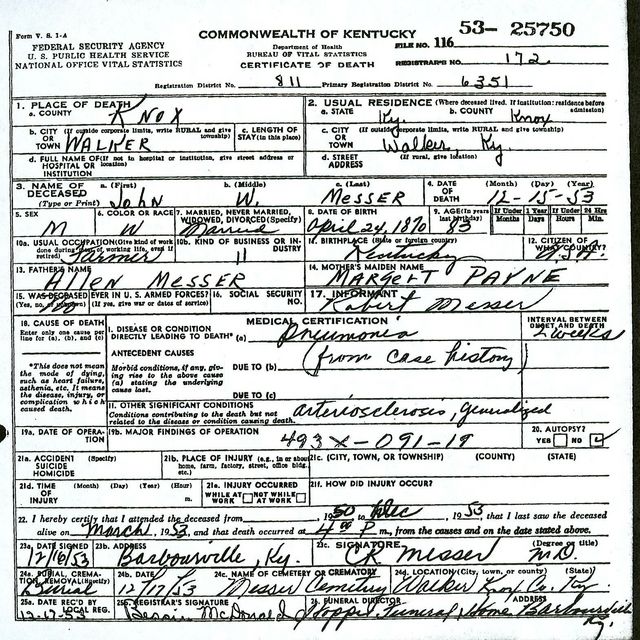 Form V. S. 1-A
FEDERAL SECURITY AGENCY
U. S. PUBLIC HEALTH SERVICE
NATIONAL OFFICE VITAL STATISTICS
COMMONWEALTH OF KENTUCKY
Department of Health
BUREAU OF VITAL STATISTICS
CERTIFICATE OF DEATH
53- 25750
FILE NO. 116
REGISTRAR'S NO. 172
Registration District No. 811 Primary Registration District No. 6351
1. PLACE OF DEATH
a. COUNTY KNOX
2. USUAL RESIDENCE (Where deceased lived. If institution: residence before admission)
a. STATE Ky. b. COUNTY Knox
b. CITY (If outside corporate limits, write RURAL and give township) OR TOWN WALKER
c. LENGTH OF STAY (in this place)
c. CITY (If outside corporate limits, write RURAL and give township) OR TOWN Walker, Ky.
d. FULL NAME OF (If not in hospital or institution, give street address or location) HOSPITAL OR INSTITUTION
d. STREET ADDRESS (If rural, give location)
3. NAME OF DECEASED (Type or Print) a. (First) John b. (Middle) W. c. (Last) MESSER
4. DATE OF DEATH (Month) (Day) (Year) 12-15-53
5. SEX M
6. COLOR OR RACE W
7. MARRIED, NEVER MARRIED, WIDOWED, DIVORCED (Specify) Married
8. DATE OF BIRTH April 24, 1870
9. AGE (In years last birthday) 83
If Under 1 Year Months Days If Under 24 Hrs Hours Min.
10a. USUAL OCCUPATION (Give kind of work done during most of working life, even if retired) Farmer
10b. KIND OF BUSINESS OR INDUSTRY 11
11. BIRTHPLACE (State or foreign country) Kentucky
12. CITIZEN OF WHAT COUNTRY? U.S.A.
13. FATHER'S NAME Allen MESSER
14. MOTHER'S MAIDEN NAME MARGERT PAYNE
15. WAS DECEASED EVER IN U.S. ARMED FORCES? (Yes, no, or unknown) (If yes, give war or dates of service) No
16. SOCIAL SECURITY NO.
17. INFORMANT Robert Messer
18. CAUSE OF DEATH
Enter only one cause per line for (a), (b), and (c)
*This does not mean the mode of dying, such as heart failure, asthenia, etc. It means the disease, injury, or complication which caused death.
MEDICAL CERTIFICATION
INTERVAL BETWEEN ONSET AND DEATH
I. DISEASE OR CONDITION DIRECTLY LEADING TO DEATH* (a) Pneumonia 2 weeks
ANTECEDENT CAUSES
Morbid conditions, if any, giving rise to the above cause (a) stating the underlying cause last.
DUE TO (b) (from case history)
DUE TO (c)
II. OTHER SIGNIFICANT CONDITIONS
Conditions contributing to the death but not related to the disease or condition causing death.
arteriosclerosis, generalized
19a. DATE OF OPERATION
19b. MAJOR FINDINGS OF OPERATION
493X-091-19
20. AUTOPSY?
YES NO
21a. ACCIDENT SUICIDE HOMICIDE (Specify)
21b. PLACE OF INJURY (e.g., in or about home, farm, factory, street, office bldg., etc.)
21c. (CITY, TOWN, OR TOWNSHIP) (COUNTY) (STATE)
21d. TIME OF INJURY (Month) (Day) (Year) (Hour) m.
21e. INJURY OCCURRED WHILE AT WORK NOT WHILE AT WORK
21f. HOW DID INJURY OCCUR?
22. I hereby certify that I attended the deceased from 1950 to Dec, 1953, that I last saw the deceased
alive on March, 1953, and that death occurred at 4:00 P m., from the causes and on the date stated above.
23a. DATE SIGNED 12/16/53
23b. ADDRESS Barbourville, Ky.
23c. SIGNATURE Messer M.D. (Degree or title)
24a. BURIAL, CREMATION, REMOVAL (Specify) Burial
24b. DATE 12/17/53
24c. NAME OF CEMETERY OR CREMATORY Messer Cemetery
24d. LOCATION (City, town, or county) (State) Walker Knox Co. Ky.
25a. DATE REC'D BY LOCAL REG. 12-17-53
25b. REGISTRAR'S SIGNATURE McDonald
26. FUNERAL DIRECTOR ADDRESS Hopper Funeral Home Barbourville Ky.